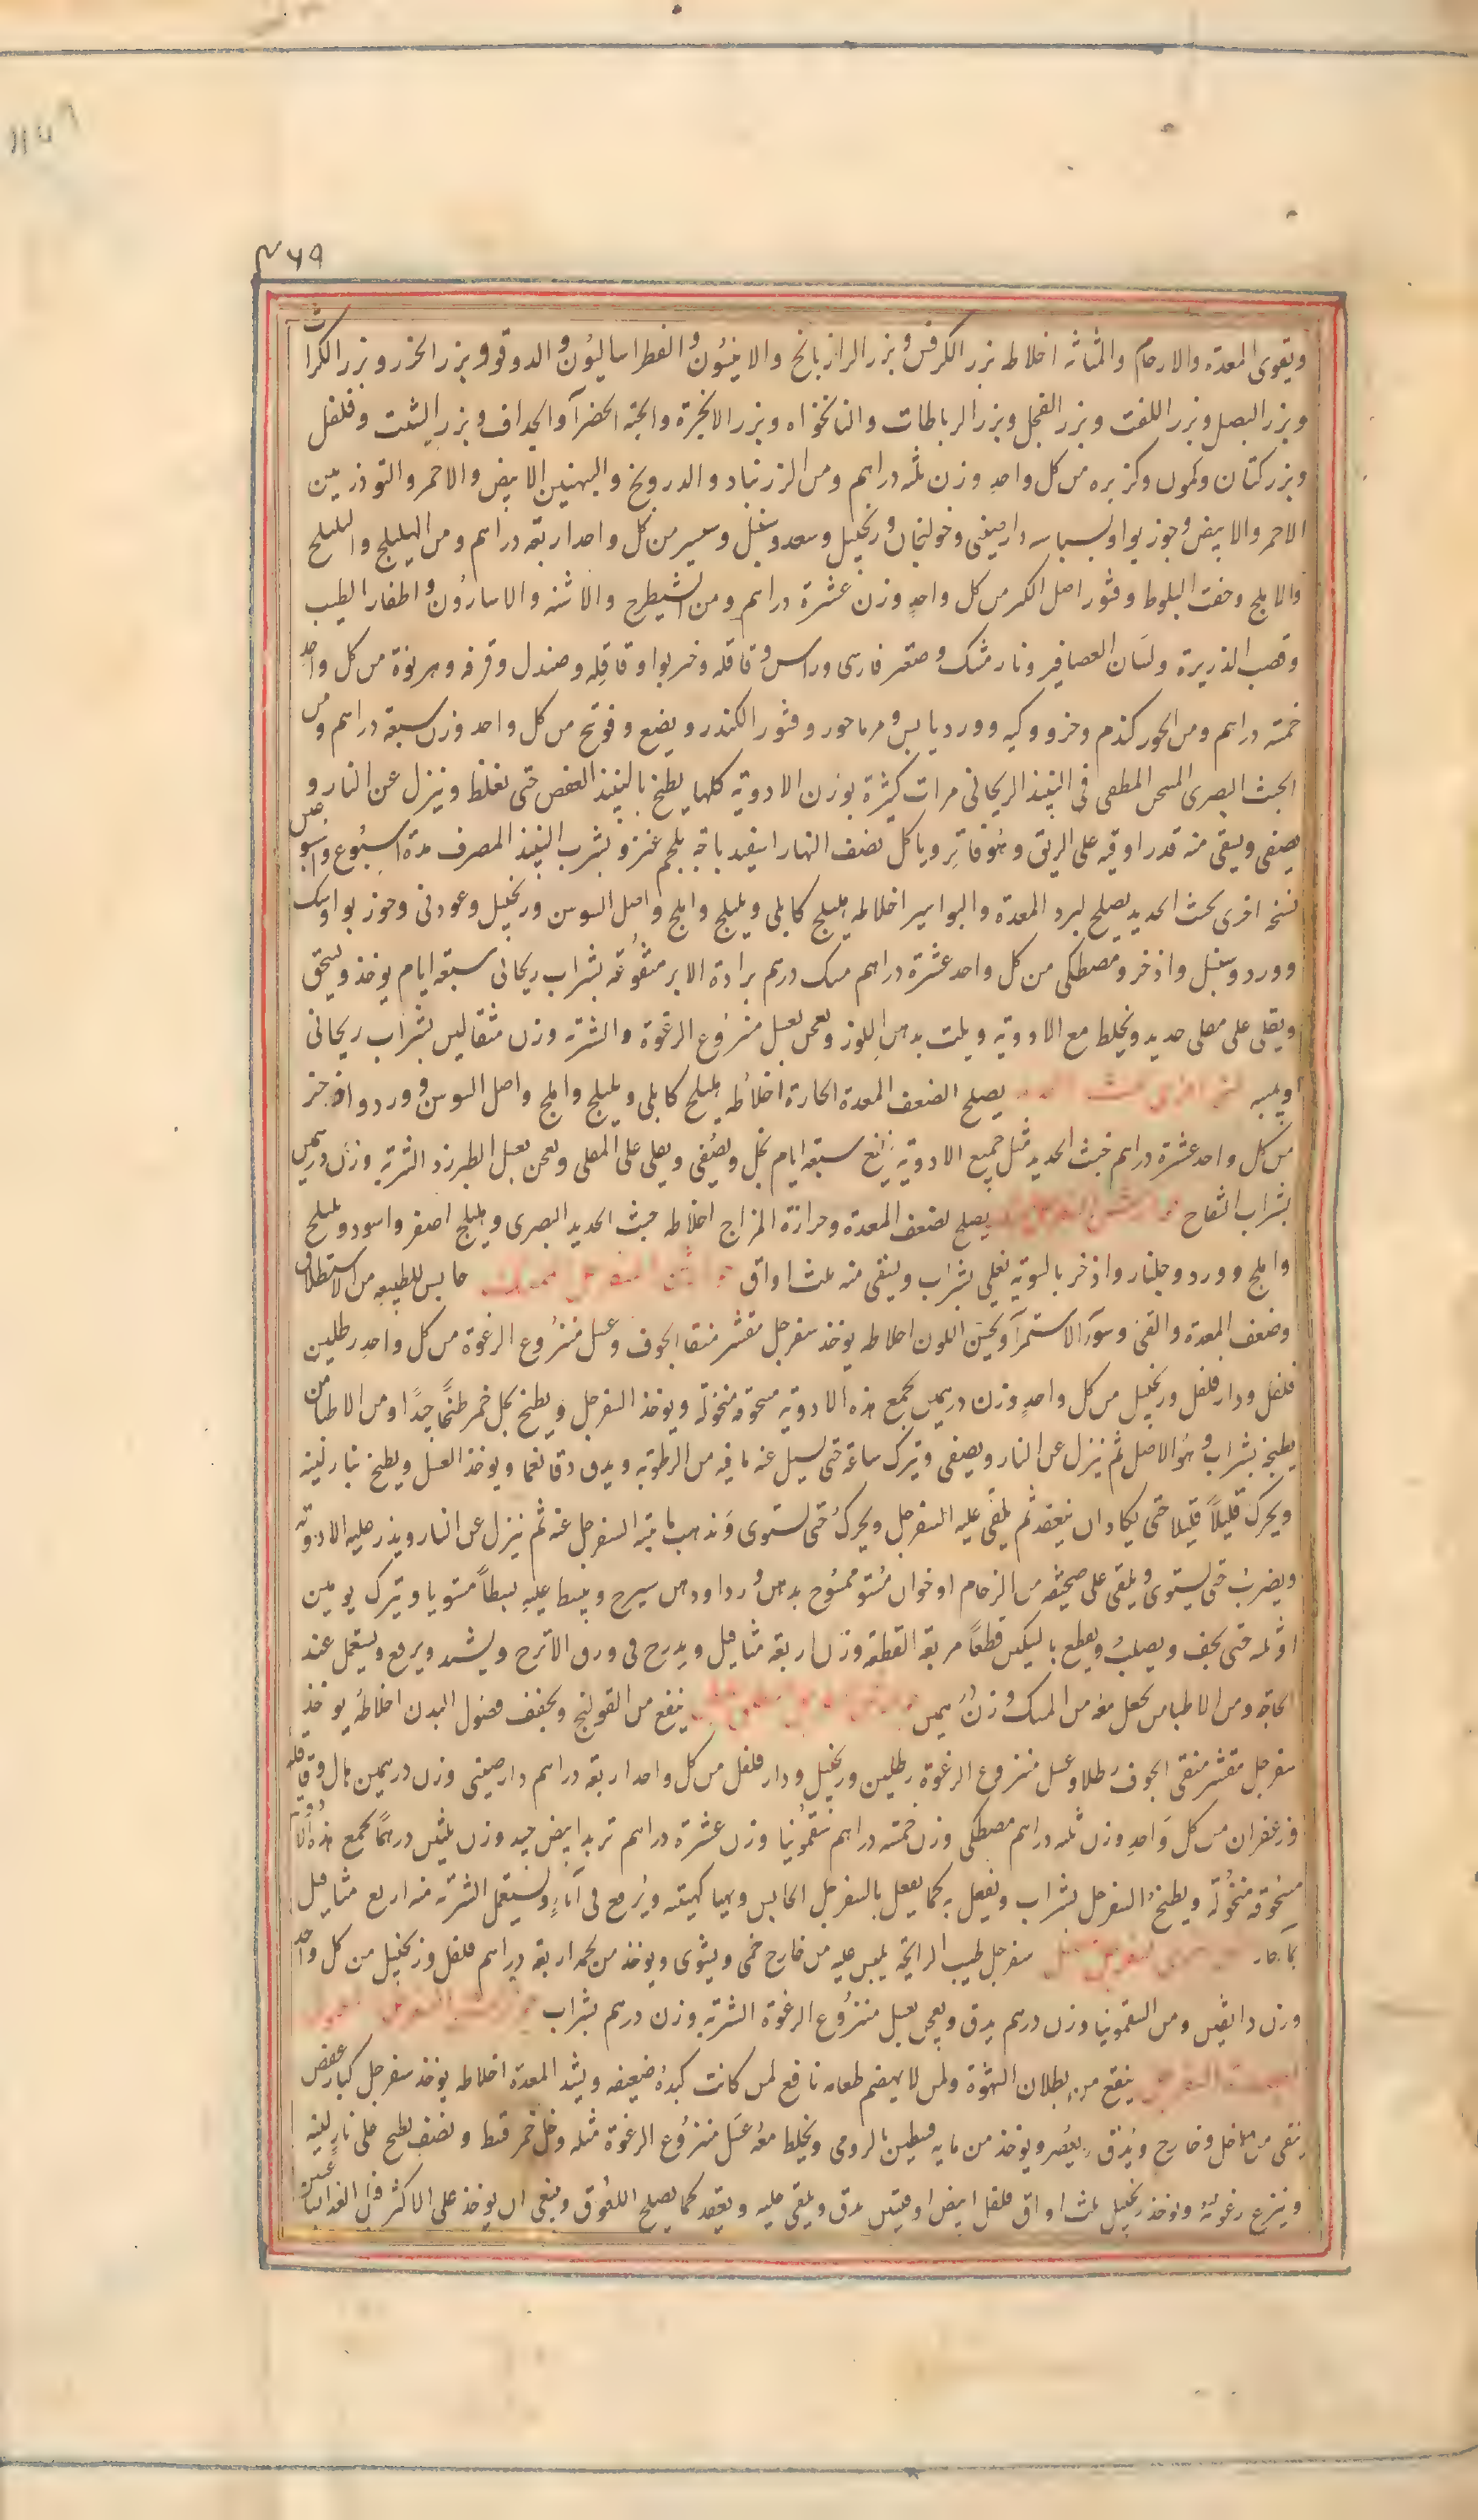 ٤٦٩
ويقوى المعدة والارحام والمثانه اخلاطه بزر الكرفس وبزر الرازيانج والانيسون والفطراساليون والدوقو وبزر الجزر وبزر الكراث
وبزر البصل وبزر اللفت وبزر الفجل وبزر الرباطات والنانخواه وبزر الانجرة والحبة الخضرآ والحداف وبزر الشبت وفلفل
وبزر كتان وكمون وكزبره من كل واحد وزن ثلثه دراهم ومن الزرنباد والدرونج والبهمنين الابيض والاحمر والتوذرىين
الاحمر والابيض وجوزبوا وبسباسه دارصينى وخولنجان وزنجبيل وسعد وسنبل وسعيير من كل واحد اربعة دراهم ومن الهليلج والبليلج
والاملج وجفت البلوط وقشور اصل الكبر من كل واحد وزن عشرة دراهم ومن الشيطرج والاشنه والاسارون واظفار الطيب
وقصب الذريرة ولسان العصافير ونارمشك وصعتر فارسى وراسن وقاقله وخيربوا وقاقله وصندل وقرفه وهرنوة من كل واحد
خمسة دراهم ومن الجوركندم وخزووكيه وورد يابس ومرماحور وقشور الكندر ويضع وفوتنج من كل واحد وزن سبعة دراهم ومن
الخبث البصرى المسحن المطفى فى النبيذ الريحانى مرات كثيرة بوزن الادوية كلها يطبخ بالنبيذ العفص حتى يغلظ وينزل عن النار و
يصفى ويسقى منه قدر اوقيه على الريق وهو فاتر وياكل نصف النهار اسفيدباجة بلحم عنز ويشرب النبيذ المصرف مدة اسبوع واسبوعين
نسخه اخرى لخبث الحديد يصلح لبرد المعدة والبواسير اخلاطه هليلج كابلى وبليلج واملج واصل السوسن وزنجبيل وعودنى وجوزبوا ومسك
وورد وسنبل واذخر ومصطكى من كل واحد عشرة دراهم مسك درهم برادة الابر منقوعة بشراب ريحانى سبعة ايام يوخذ ويسحق
ويقلى على مقلى حديد ويخلط مع الادوية ويلت بدهن اللوز ويعجن بعسل منزوع الرغوة والشربة وزن مثقالين بشراب ريحانى
او ميبه يصلح الضعف المعدة الحارة اخلاطه هليلج كابلى وبليلج واملج واصل السوسن وورد واذخر
من كل واحد عشرة دراهم خبث الحديد مثل جميع الادوية ينقع سبعة ايام بخل ويصفى ويقلى على المقلى ويعجن بعسل الطبرزد الشربة وزن درهمين
بشراب التفاح يصلح لضعف المعدة وحرارة المزاج اخلاطه خبث الحديد البصرى وهليلج اصفر واسود وبليلج
واملج وورد وجلنار واذخر بالسوية يغلى بشراب ويسقى منه ثلث اواق حابس للطبيعه من الاستطلاق
وضعف المعدة والقئ وسوء الاستمرآ ويحسن اللون اخلاطه يوخذ سفرجل مقشر منقا الجوف وعسل منزوع الرغوة من كل واحد رطلين
فلفل ودارفلفل وزنجبيل من كل واحد وزن درهمين يجمع هذه الادوية مسحوقة منخولة ويوخذ السفرجل ويطبخ بخل خمر طبخًا جيدًا ومن الاطبا من
يطبخه بشراب وهو الاصل ثم ينزل عن النار ويصفى ويترك ساعة حتى يسيل عنه مافيه من الرطوبة ويدق دقا نعما ويوخذ العسل ويطبخ بنار لينه
ويحرك قليلاً قليلا حتى يكاد ان ينعقد ثم يلقى عليه السفرجل ويحرك حتى يستوى وتذهب مائية السفرجل عنه ثم ينزل عن النار ويذر عليه الادوية
ويضرب حتى يستوى ويلقى على صحيفه من الرخام او خوان مستو ممسوح بدهن ورد او دهن سيرج ويبسط عليه بسطاً مستويا ويترك يومين
او ثلثه حتى يجف ويصلب ويقطع بالسكين قطعًا مربعة القطعة وزن اربعة مثاقيل ويدرج فى ورق الاترج ويشد ويرفع ويستعمل عند
الحاجة ومن الاطبا من يجعل معه من المسك وزن درهمين ينفع من القولنج ويجفف فضول البدن اخلاطه يوخذ
سفرجل مقشر منقى الجوف رطلا وعسل منزوع الرغوة رطلين وزنجبيل ودارفلفل من كل واحد اربعة دراهم دارصينى وزن درهمين هال وقاقله
وزعفران من كل واحد وزن ثلثه دراهم مصطكى وزن خمسة دراهم سقمونيا وزن عشرة دراهم تربد ابيض جيد وزن ثلثين درهمًا يجمع هذه الادويه
مسحوقة منخولة ويطبخ السفرجل بشراب ويفعل به كما يفعل بالسفرجل الحابس ويهيا كهيئته ويرفع فى آناء ويستعمل الشربة منه اربع مثاقيل
بماء حار سفرجل طيب الرايحة يلبس عليه من خارج خمى ويشوى ويوخذ من لحمه اربعة دراهم فلفل وزنجبيل من كل واحد
وزن دانقين ومن السقمونيا وزن درهم يدق ويعجن بعسل منزوع الرغوة الشربة وزن درهم بشراب
ينفع من بطلان الشهوة ولمن لا يهضم طعامه نافع لمن كانت كبده ضعيفه ويشد المعدة اخلاطه يوخذ سفرجل كبار عفص
ينقى من داخل وخارج ويدق ويعصر ويوخذ من مايه قسطين بالرومى ويخلط معه عسل منزوع الرغوة مثله وخل خمر قسط ونصف يطبخ على نار لينه
وينزع رغوته ويوخذ زنجبيل ثلث اواق فلفل ابيض اوقيتين يدق ويلقى عليه ويعقد كما يصلح اللعوق وينبغى ان يوخذ على الاكثر قبل الغدا بساعتين